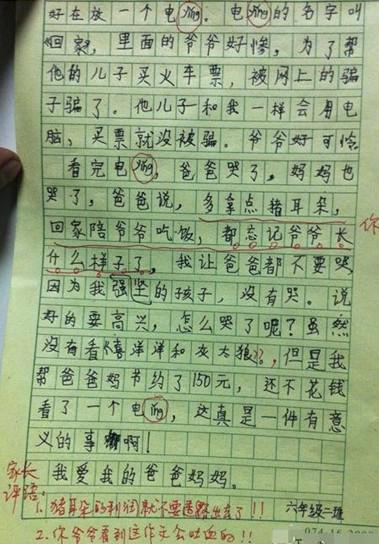 好在放一个电影。电影的名字叫
《回家》,里面的爷爷好惨,为了帮
他的儿子买火车票,被网上的骗
子骗了。他儿子和我一样会用电
脑,买票就没被骗。爷爷好可怜
看完电影,爸爸哭了,妈妈也
哭了,爸爸说,多拿点猪耳朵,
回家陪爷爷吃饭,都忘记爷爷长
什么样子了,我让爸爸都不要哭
因为我强坚的孩子,没有哭。说
好的要高兴,怎么哭了呢?虽然
没有看《喜洋洋和灰太狼》,但是我
帮爸爸妈节约了150元,还不花钱
看了一个电影,这真是一件有意
义的事啊!
我爱我的爸爸妈妈。
家长
评语:
1.猪耳朵的利润就不要透露出去了!!
六年级二班
2.你爷爷看到这作文会吐血的!!